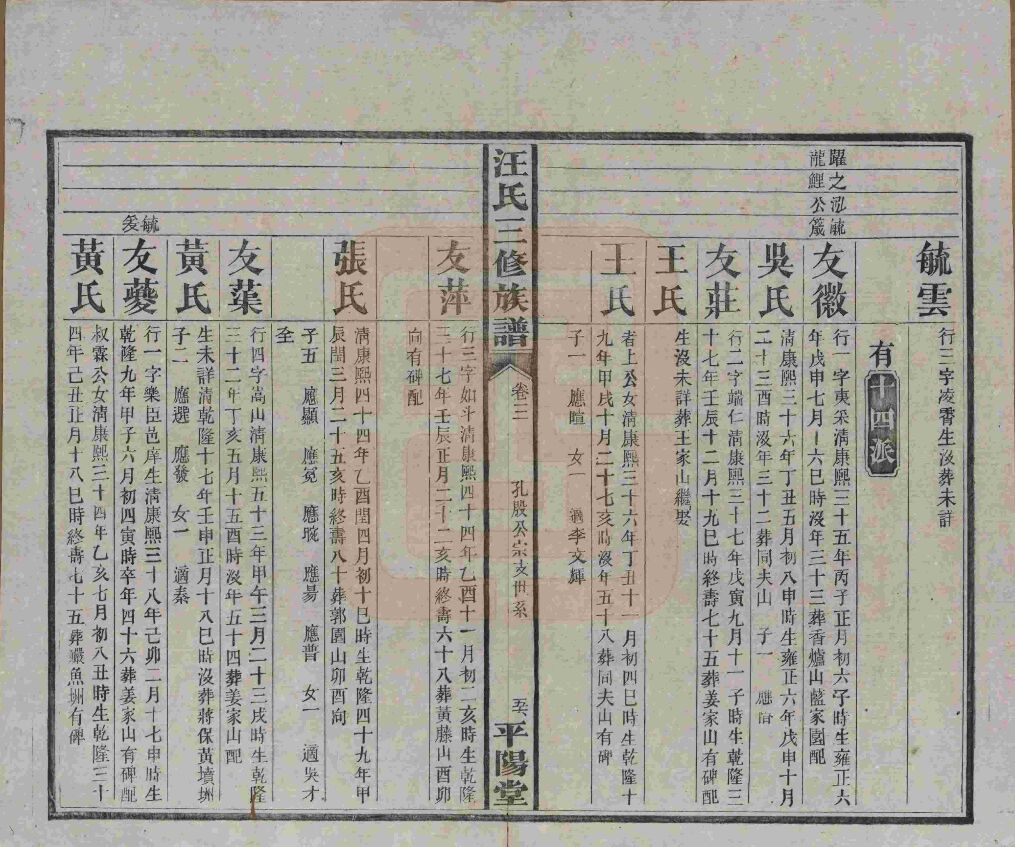 毓雲
行三字凌霄生沒葬未詳
有十四派
躍之泓毓
龍鯉公箴
友徽
行一字夷采清康熙三十五年丙子正月初六子時生雍正六
年戊申七月十六巳時沒年三十三葬香爐山藍家園配
吳氏
清康熙三十六年丁丑五月初八申時生雍正六年戊申十月
二十三酉時沒年三十二葬同夫山 子一 應
友莊
行二字端仁清康熙三十七年戊寅九月十一子時生乾隆三
十七年壬辰十二月十九巳時終壽七十五葬姜家山有碑配
王氏
生沒未詳葬王家山繼娶
王氏
者上公女清康熙三十六年丁丑十一月初四巳時生乾隆十
九年甲戌十月二十七亥時沒年五十八葬同夫山有碑
子一 應暄 女一 適李文輝
汪氏三修族譜
卷三
孔殷公宗支世系
平陽堂
友萍
行三字如斗清康熙四十四年乙酉十一月初二亥時生乾隆
三十七年壬辰正月二十二亥時終壽六十八葬黃藤山酉卯
向有碑配
張氏
清康熙四十四年乙酉閏四月初十巳時生乾隆四十九年甲
辰閏三月二十五亥時終壽八十葬郭園山卯酉向
子五 應顯 應冕 應璇 應昜 應普 女一 適吳才
全
友葉
行四字嵩山清康熙五十三年甲午三月二十三戌時生乾隆
三十二年丁亥五月十五酉時沒年五十四葬姜家山配
黃氏
生未詳清乾隆十七年壬申正月十八巳時沒葬蔣保黃墳坰
子二 應選 應發 女一 適秦
毓
爰
友夔
行一字樂臣邑庠生清康熙三十八年己卯二月十七申時生
乾隆九年甲子六月初四寅時卒年四十六葬姜家山有碑配
黃氏
叔霖公女清康熙三十四年乙亥七月初八丑時生乾隆三十
四年己丑正月十八巳時終壽七十五葬魚坰有碑